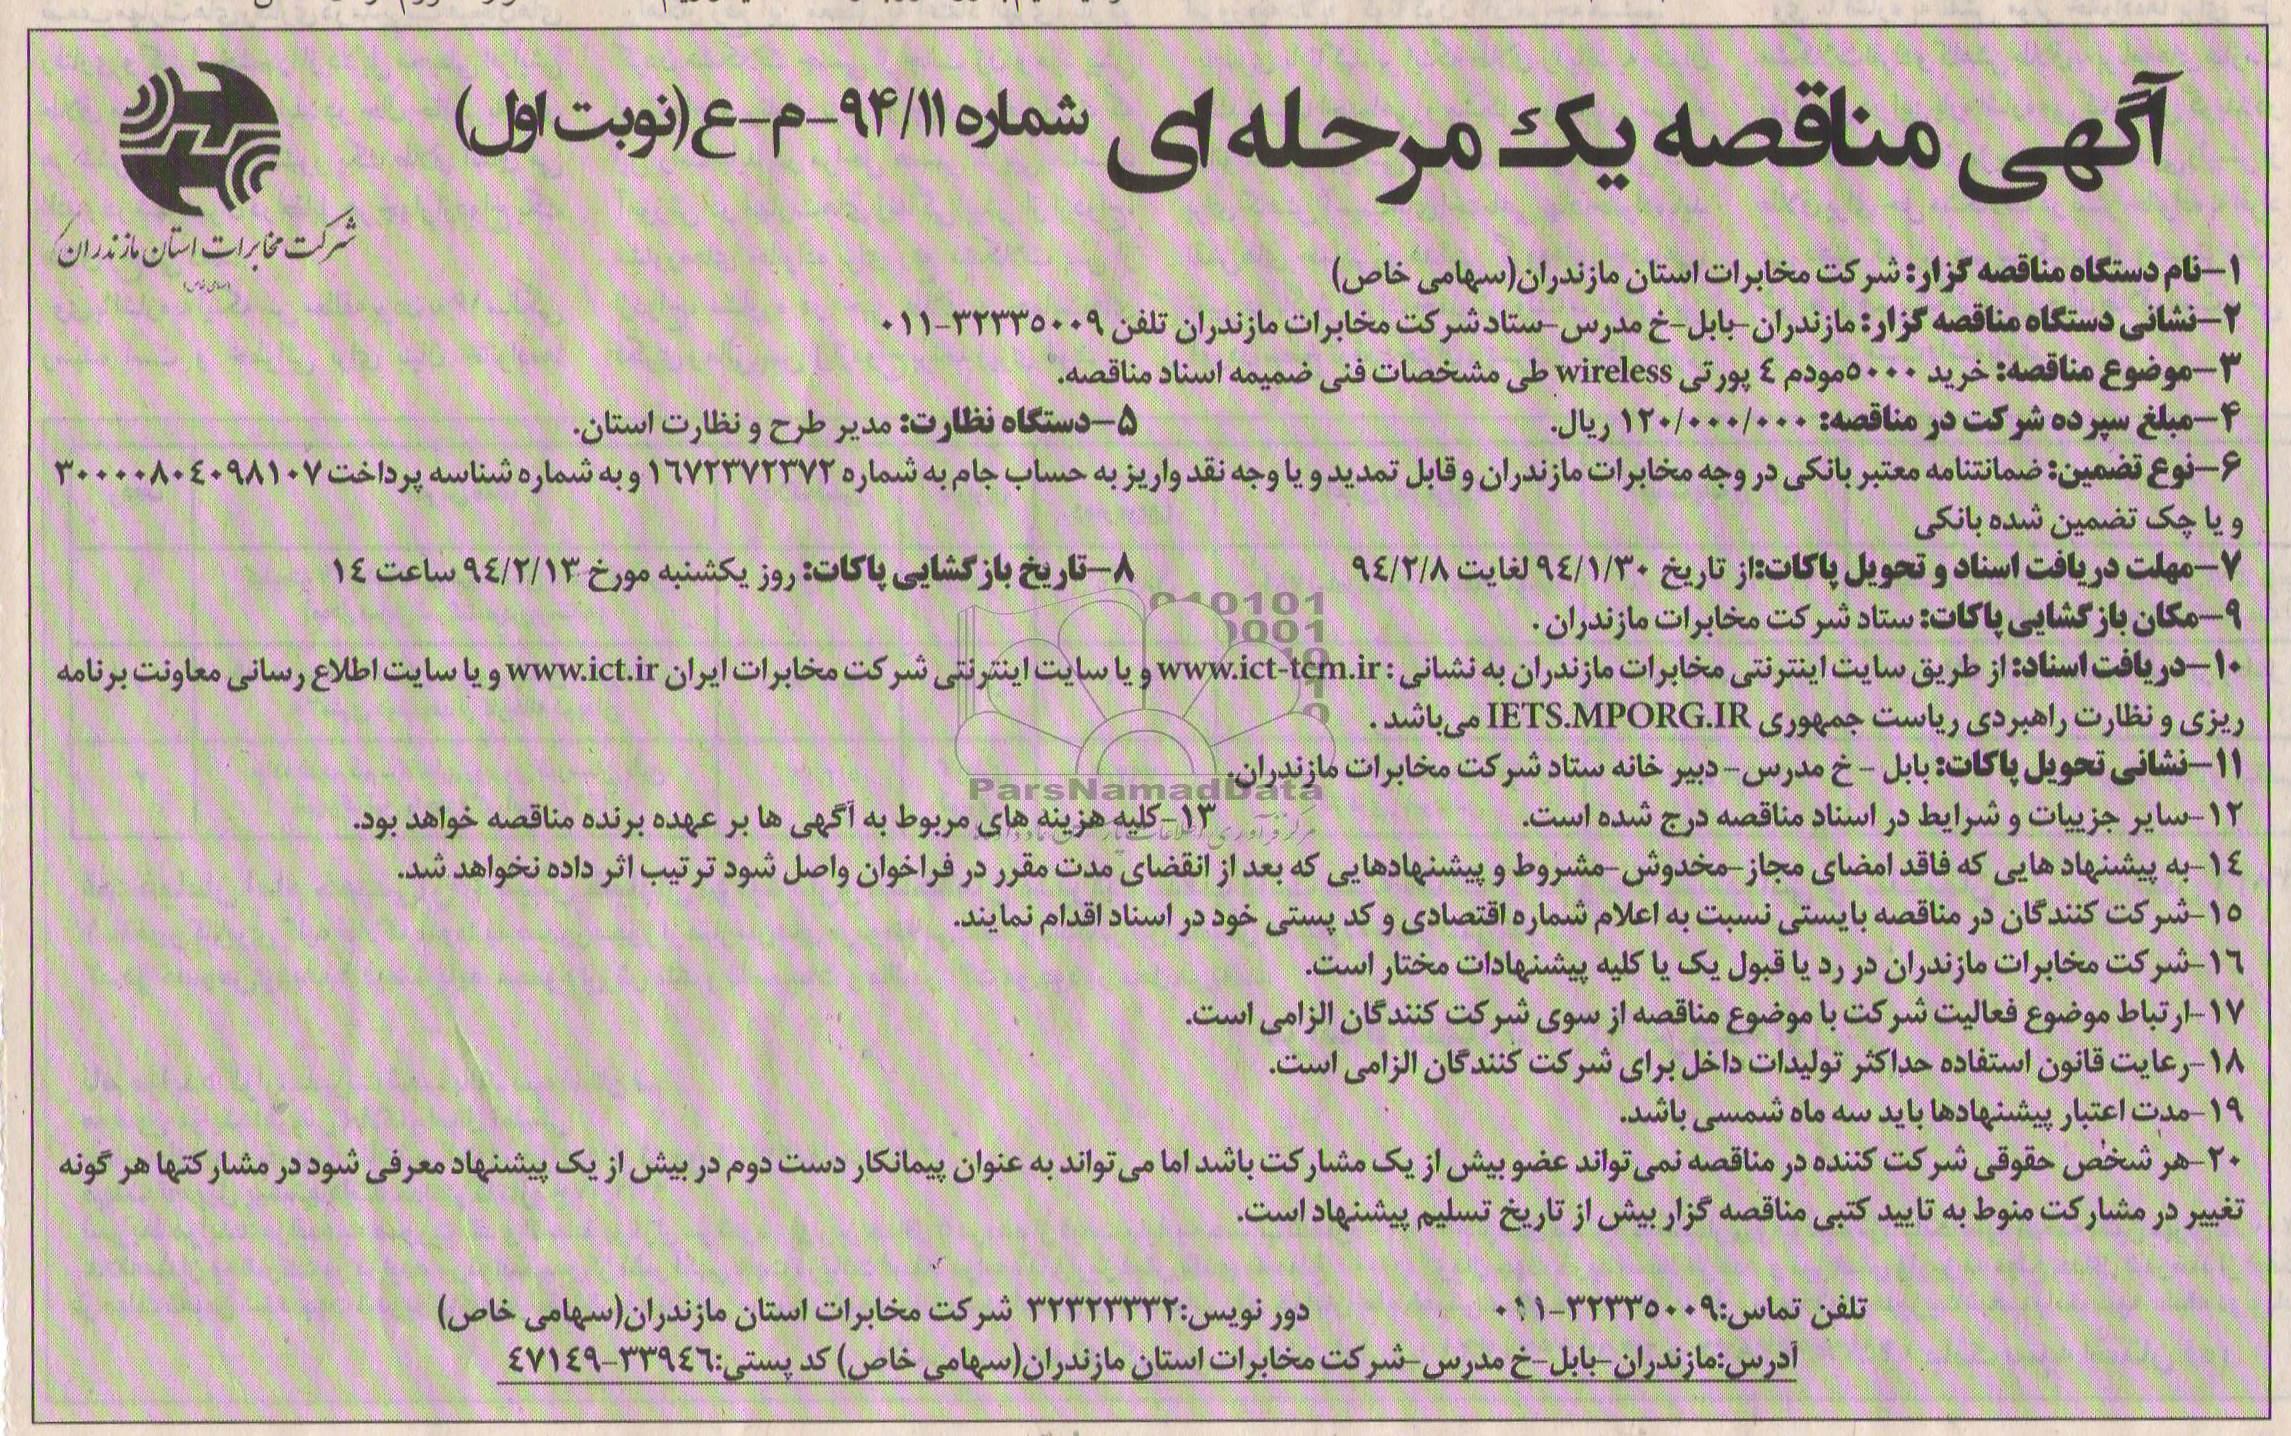 آگهی مناقصه یک مرحله ای شماره ۹۴/۱۱-م-ع (نوبت اول)
شرکت مخابرات استان مازندران
(سهامی خاص)
۱-نام دستگاه مناقصه گزار: شرکت مخابرات استان مازندران(سهامی خاص)
۲-نشانی دستگاه مناقصه گزار: مازندران-بابل-خ مدرس-ستاد شرکت مخابرات مازندران تلفن ۳۲۳۳۵۰۰۹-۰۱۱
۳-موضوع مناقصه: خرید ۵۰۰۰مودم ٤ پورتی wireless طی مشخصات فنی ضمیمه اسناد مناقصه.
۴-مبلغ سپرده شرکت در مناقصه: ۱۲۰/۰۰۰/۰۰۰ ریال. ۵-دستگاه نظارت: مدیر طرح و نظارت استان.
۶-نوع تضمین: ضمانتنامه معتبر بانکی در وجه مخابرات مازندران و قابل تمدید و یا وجه نقد واریز به حساب جام به شماره ۱٦۷۲۳۷۲۳۷۲ و به شماره شناسه پرداخت ۳۰۰۰۰۸۰٤۰۹۸۱۰۷
و یا چک تضمین شده بانکی
۷-مهلت دریافت اسناد و تحویل پاکات:از تاریخ ۹٤/۱/۳۰ لغایت ۹٤/۲/۸ ۸-تاریخ بازگشایی پاکات: روز یکشنبه مورخ ۹٤/۲/۱۳ ساعت ۱٤
۹-مکان بازگشایی پاکات: ستاد شرکت مخابرات مازندران .
۱۰-دریافت اسناد: از طریق سایت اینترنتی مخابرات مازندران به نشانی : www.ict-tcm.ir و یا سایت اینترنتی شرکت مخابرات ایران www.ict.ir و یا سایت اطلاع رسانی معاونت برنامه
ریزی و نظارت راهبردی ریاست جمهوری IETS.MPORG.IR می‌باشد .
۱۱-نشانی تحویل پاکات: بابل - خ مدرس- دبیر خانه ستاد شرکت مخابرات مازندران.
ParsNamadData
۱۲-سایر جزییات و شرایط در اسناد مناقصه درج شده است. ۱۳-کلیه هزینه های مربوط به آگهی ها بر عهده برنده مناقصه خواهد بود.
۱٤-به پیشنهاد هایی که فاقد امضای مجاز-مخدوش-مشروط و پیشنهادهایی که بعد از انقضای مدت مقرر در فراخوان واصل شود ترتیب اثر داده نخواهد شد.
۱۵-شرکت کنندگان در مناقصه بایستی نسبت به اعلام شماره اقتصادی و کد پستی خود در اسناد اقدام نمایند.
۱٦-شرکت مخابرات مازندران در رد یا قبول یک یا کلیه پیشنهادات مختار است.
۱۷-ارتباط موضوع فعالیت شرکت با موضوع مناقصه از سوی شرکت کنندگان الزامی است.
۱۸-رعایت قانون استفاده حداکثر تولیدات داخل برای شرکت کنندگان الزامی است.
۱۹-مدت اعتبار پیشنهادها باید سه ماه شمسی باشد.
۲۰-هر شخص حقوقی شرکت کننده در مناقصه نمی‌تواند عضو بیش از یک مشارکت باشد اما می‌تواند به عنوان پیمانکار دست دوم در بیش از یک پیشنهاد معرفی شود در مشارکتها هر گونه
تغییر در مشارکت منوط به تایید کتبی مناقصه گزار بیش از تاریخ تسلیم پیشنهاد است.
تلفن تماس:۳۲۳۳۵۰۰۹-۰۱۱ دور نویس:۳۲۳۲۳۳۳۲ شرکت مخابرات استان مازندران(سهامی خاص)
آدرس:مازندران-بابل-خ مدرس-شرکت مخابرات استان مازندران(سهامی خاص) کد پستی:۳۳۹٤٦-٤۷۱٤۹